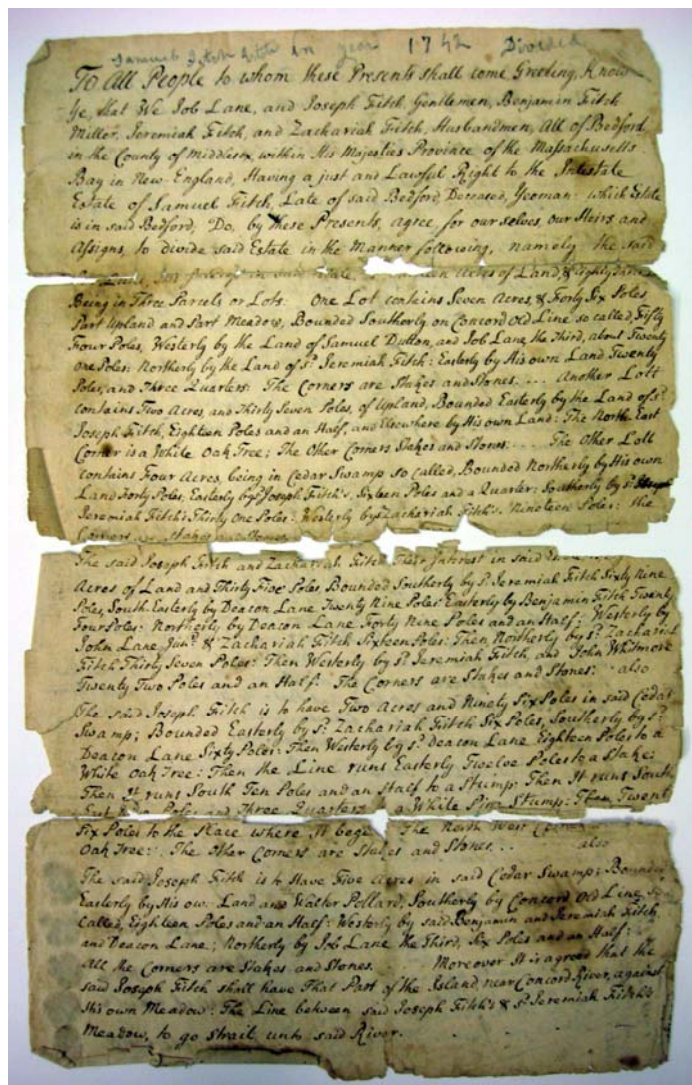 Samuel Fitch Estate in year 1742 Divided
To All People to whom these Presents shall come Greeting, Know
Ye, that We Job Lane, and Joseph Fitch, Gentlemen, Benjamin Fitch
Miller, Jeremiah Fitch, and Zachariah Fitch, Husbandmen, All of Bedford
in the County of Middlesex, within His Majesties Province of the Massachusetts
Bay in New-England, Having a just and Lawful Right to the Intestate
Estate of Samuel Fitch, Late of said Bedford, Deceased, Yeoman: which Estate
is in said Bedford, Do, by these Presents, agree, for our selves, our Heirs and
Assigns, to divide said Estate in the Manner following, namely the said
Acres of Land, & Eighty
Being in Three Parcels or Lots: One Lot contains Seven Acres, & Forty Six Poles
Part Upland and Part Meadow, Bounded Southerly on Concord Old Line so called, Fifty
Four Poles, Westerly by the Land of Samuel Dutton, and Job Lane, the Third, about Twenty
one Poles: Northerly by the Land of sd. Jeremiah Fitch: Easterly by His own Land Twenty
Poles, and Three Quarters: The Corners are Stakes and Stones. ... Another Lott
contains Two Acres, and Thirty Seven Poles, of Upland, Bounded Easterly by the Land of sd.
Joseph Fitch, Eighteen Poles and an Half, and Elsewhere by His own Land: The North East
Corner is a White Oak Tree; The Other Corners Stakes and Stones: .... The Other Lott
contains Four Acres, being in Cedar Swamp so called, Bounded Northerly by His own
Land Forty Poles, Easterly by sd. Joseph Fitch's, Sixteen Poles and a Quarter: Southerly by sd.
Jeremiah Fitch's Thirty One Poles: Westerly by sd. Zachariah Fitch's, Nineteen Poles: the
Corners Stakes and Stones
The said Joseph Fitch and Zachariah Fitch Their Interest in said
Acres of Land and Thirty Five Poles, Bounded Southerly by sd. Jeremiah Fitch Sixty Nine
Poles, South Easterly by Deacon Lane Twenty Nine Poles: Easterly by Benjamin Fitch Twenty
Four Poles: Northerly by Deacon Lane Forty Nine Poles and an Half: Westerly by
John Lane Junr. & Zachariah Fitch Sixteen Poles: Then Northerly by sd. Zachariah
Fitch Thirty Seven Poles: Then Westerly by sd. Jeremiah Fitch, and John Whitmore
Twenty Two Poles and an Half: The Corners are Stakes and Stones: also
The said Joseph Fitch is to have Two Acres and Ninety Six Poles in said Cedar
Swamp; Bounded Easterly by sd. Zachariah Fitch Six Poles, Southerly by sd.
Deacon Lane Sixty Poles: Then Westerly by sd. Deacon Lane Eighteen Poles to a
White Oak Tree: Then the Line runs Easterly Twelve Poles to a Stake:
Then It runs South Ten Poles and an Half to a Stump: Then It runs South
East Poles and Three Quarters a White Pine Stump: Then Twenty
Six Poles to the Place where It The North West Corner
Oak Tree: The Other Corners are Stakes and Stones. .. also
The said Joseph Fitch is to Have Five Acres in said Cedar Swamp; Bounded
Easterly by His own Land and Walter Pollard, Southerly by Concord Old Line so
Called, Eighteen Poles and an Half: Westerly by said Benjamin and Jeremiah Fitch,
and Deacon Lane; Northerly by Job Lane the Third, Six Poles and an Half:
All the Corners are Stakes and Stones. Moreover It is agreed that the
said Joseph Fitch shall have That Part of the Island near Concord River, against
His own Meadow: The Line between said Joseph Fitch's & sd. Jeremiah Fitch's
Meadow, to go strait unto said River.